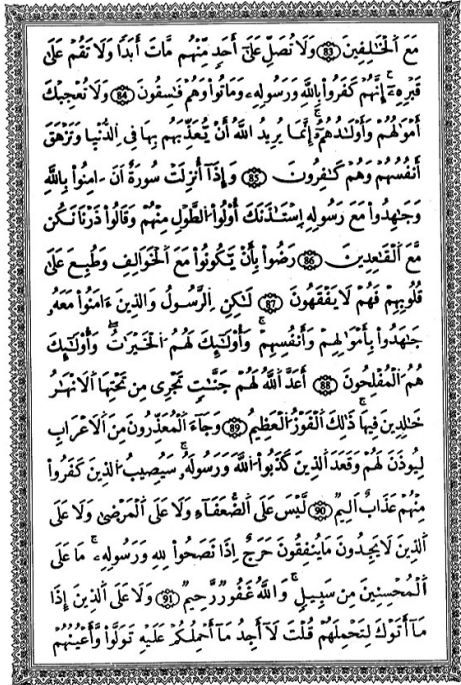 مَعَ اَ۬لْخَٰلِفِينَۖ 83 وَلَا تُصَلِّ عَلَىٰٓ أَحَدٖ مِّنْهُم مَّاتَ أَبَدٗا وَلَا تَقُمْ عَلَىٰ
قَبْرِهِۦٓۖ إِنَّهُمْ كَفَرُواْ بِاللَّهِ وَرَسُولِهِۦ وَمَاتُواْ وَهُمْ فَٰسِقُونَۖ 84 وَلَا تُعْجِبْكَ
أَمْوَٰلُهُمْ وَأَوْلَٰدُهُمُۥٓۖ إِنَّمَا يُرِيدُ اُ۬للَّهُ أَنْ يُّعَذِّبَهُم بِهَا فِي اِ۬لدُّنْيَا وَتَزْهَقَ
أَنفُسُهُمْ وَهُمْ كَٰفِرُونَۖ 85 وَإِذَآ أُنزِلَتْ سُورَةٌ اَنَ اٰمِنُواْ بِاللَّهِ
وَجَٰهِدُواْ مَعَ رَسُولِهِ اِ۪سْتَـْٔذَنَكَ أُوْلُواْ اُ۬لطَّوْلِ مِنْهُمْ وَقَالُواْ ذَرْنَا نَكُن
مَّعَ اَ۬لْقَٰعِدِينَۖ 86 رَضُواْ بِأَنْ يَّكُونُواْ مَعَ اَ۬لْخَوَالِفِ وَطُبِعَ عَلَىٰ
قُلُوبِهِمْ فَهُمْ لَا يَفْقَهُونَۖ 87 لَٰكِنِ اِ۬لرَّسُولُ وَالذِينَ ءَامَنُواْ مَعَهُۥ
جَٰهَدُواْ بِأَمْوَٰلِهِمْ وَأَنفُسِهِمْۖ وَأُوْلَٰٓئِكَ لَهُمُ اُ۬لْخَيْرَٰتُۖ وَأُوْلَٰٓئِكَ
هُمُ اُ۬لْمُفْلِحُونَۖ 88 أَعَدَّ اَ۬للَّهُ لَهُمْ جَنَّٰتٖ تَجْرِي مِن تَحْتِهَا اَ۬لَانْهَٰرُ
خَٰلِدِينَ فِيهَاۖ ذَٰلِكَ اَ۬لْفَوْزُ اُ۬لْعَظِيمُۖ 89 وَجَآءَ اَ۬لْمُعَذِّرُونَ مِنَ اَ۬لَاعْرَابِ
لِيُوذَنَ لَهُمْ وَقَعَدَ اَ۬لذِينَ كَذَبُواْ اُ۬للَّهَ وَرَسُولَهُۥۖ سَيُصِيبُ اُ۬لذِينَ كَفَرُواْ
مِنْهُمْ عَذَابٌ اَلِيمٞۖ 90 لَّيْسَ عَلَى اَ۬لضُّعَفَآءِ وَلَا عَلَى اَ۬لْمَرْضَىٰ وَلَا عَلَى
اَ۬لذِينَ لَا يَجِدُونَ مَا يُنفِقُونَ حَرَجٌ اِذَا نَصَحُواْ لِلهِ وَرَسُولِهِۦۖ مَا عَلَى
اَ۬لْمُحْسِنِينَ مِن سَبِيلٖۖ وَاللَّهُ غَفُورٞ رَّحِيمٞۖ 91 وَلَا عَلَى اَ۬لذِينَ إِذَا
مَآ أَتَوْكَ لِتَحْمِلَهُمْ قُلْتَ لَآ أَجِدُ مَآ أَحْمِلُكُمْ عَلَيْهِ تَوَلَّواْ وَّأَعْيُنُهُمْ